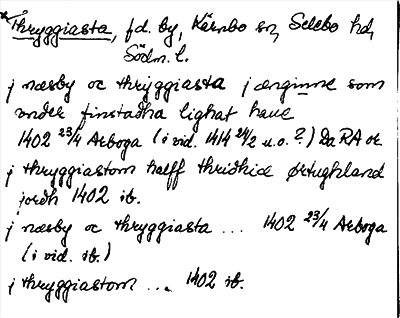 *Thryggiasta, fd. by, Kärnbo sn, Selebo hd,
Södm. l.
j næsby oc thryggiasta j ænginne som
vnder finstadha lighat haue
1402 23/4 Arboga (i vid. 1414 24/2 u.o.?) Da RA or
j thryggiastom halff thridhia ørtughland
jordh 1402 ib.
j næsby oc thryggiasta ... 1402 23/4 Arboga
(i vid. ib.)
j thryggiastom ... 1402 ib.